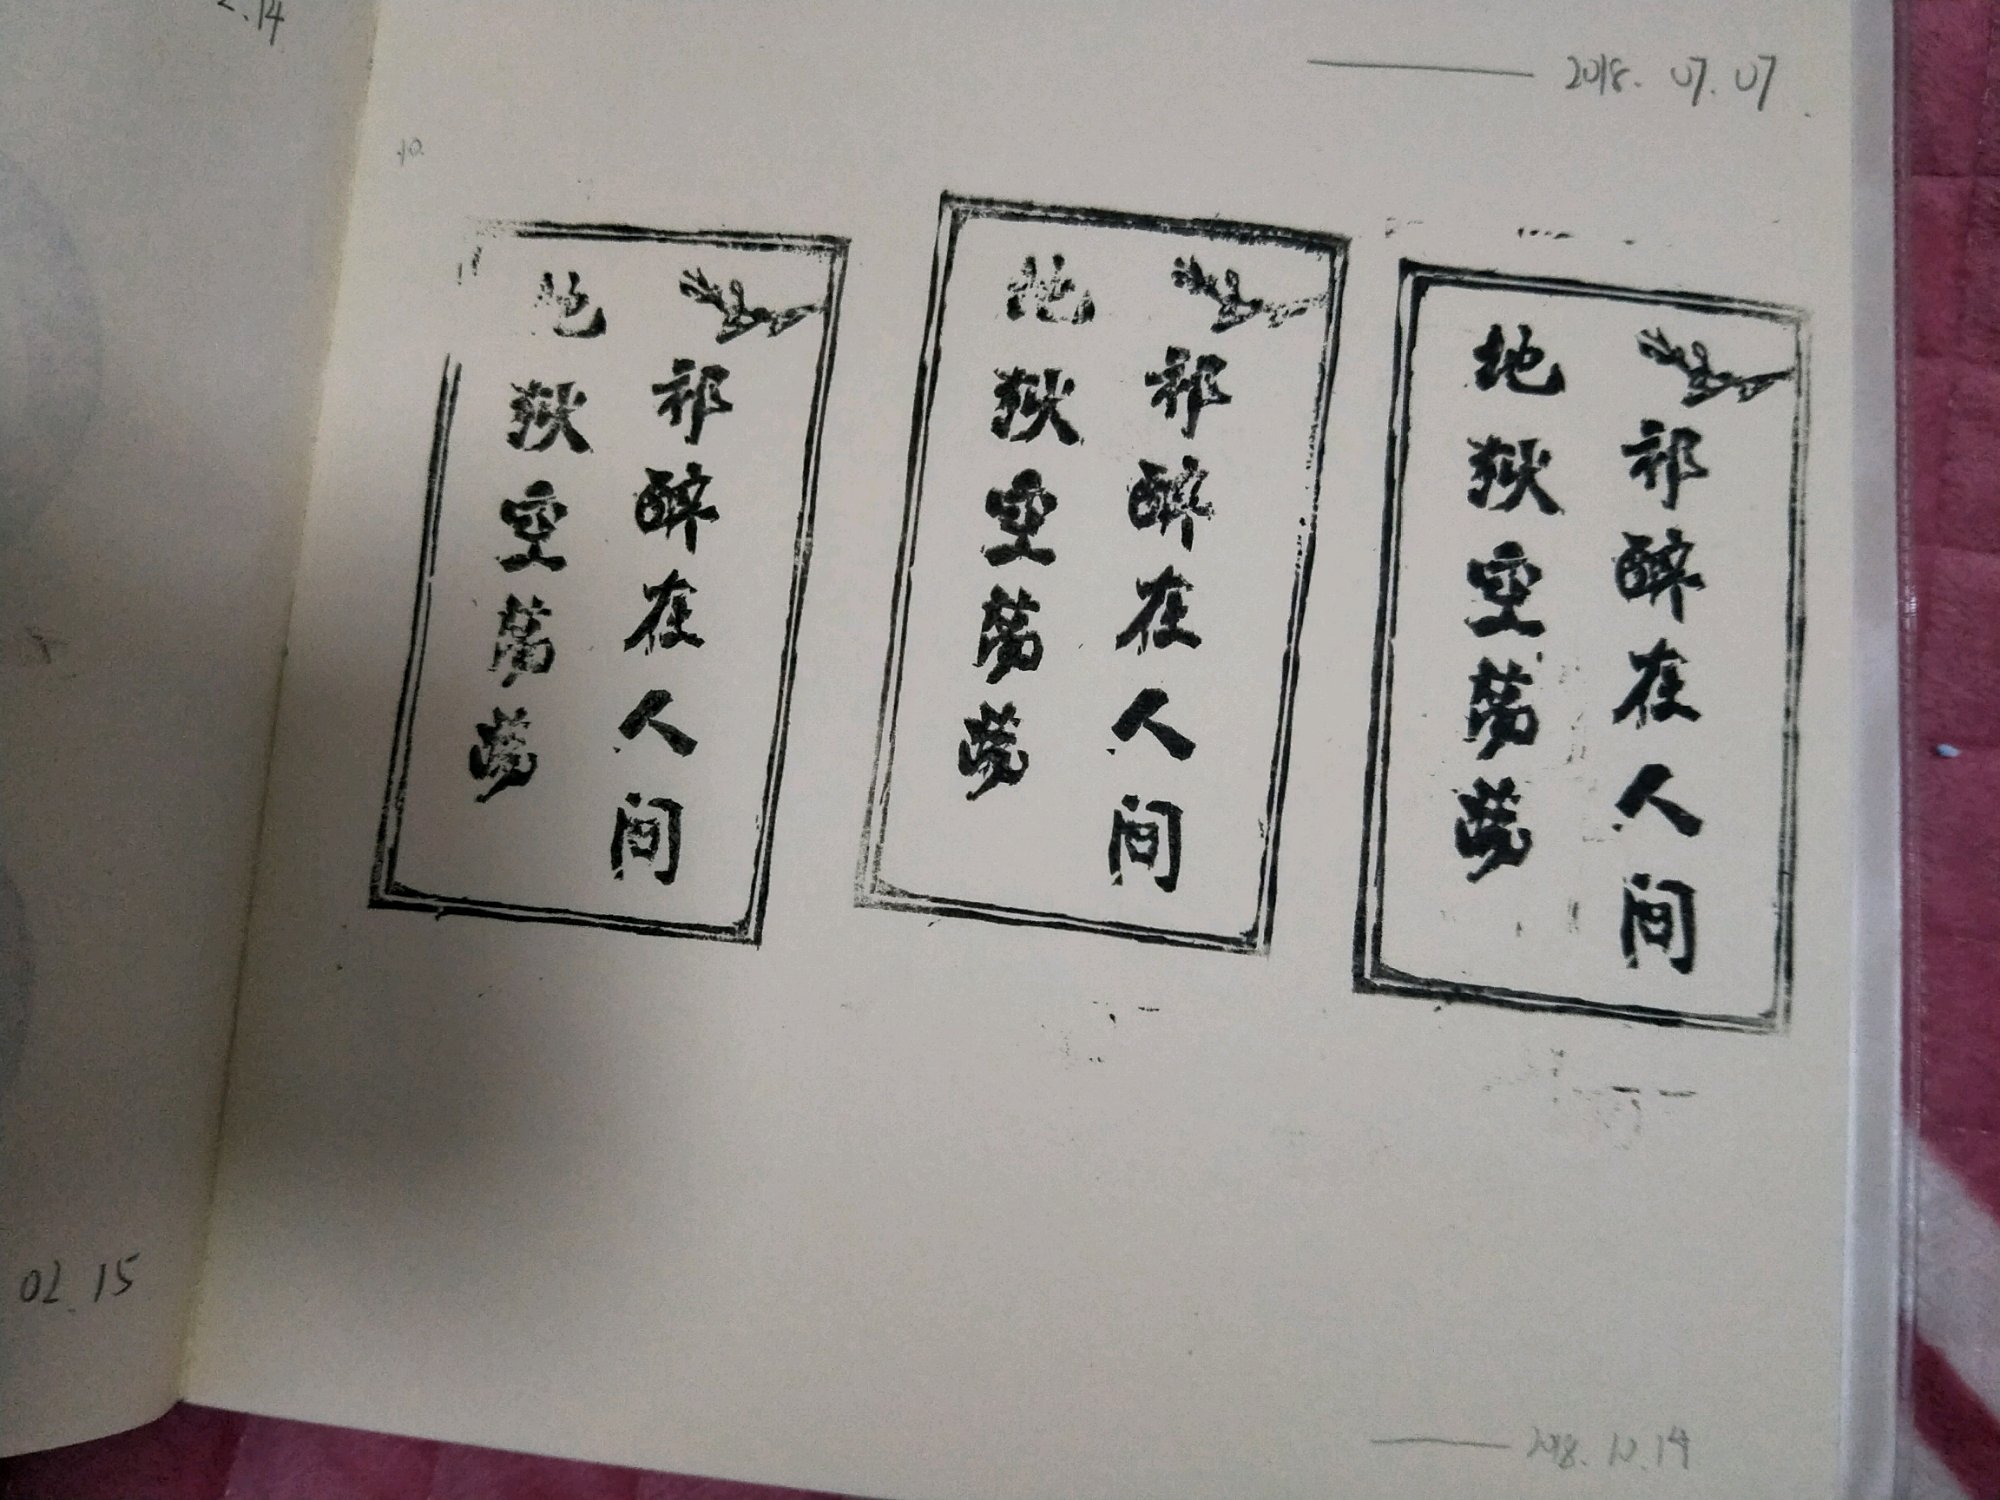 2.14
02.15
—— 2018.07.07
10.
地狱空荡荡
祁醉在人间
地狱空荡荡
祁醉在人间
地狱空荡荡
祁醉在人间
—— 2018.10.14